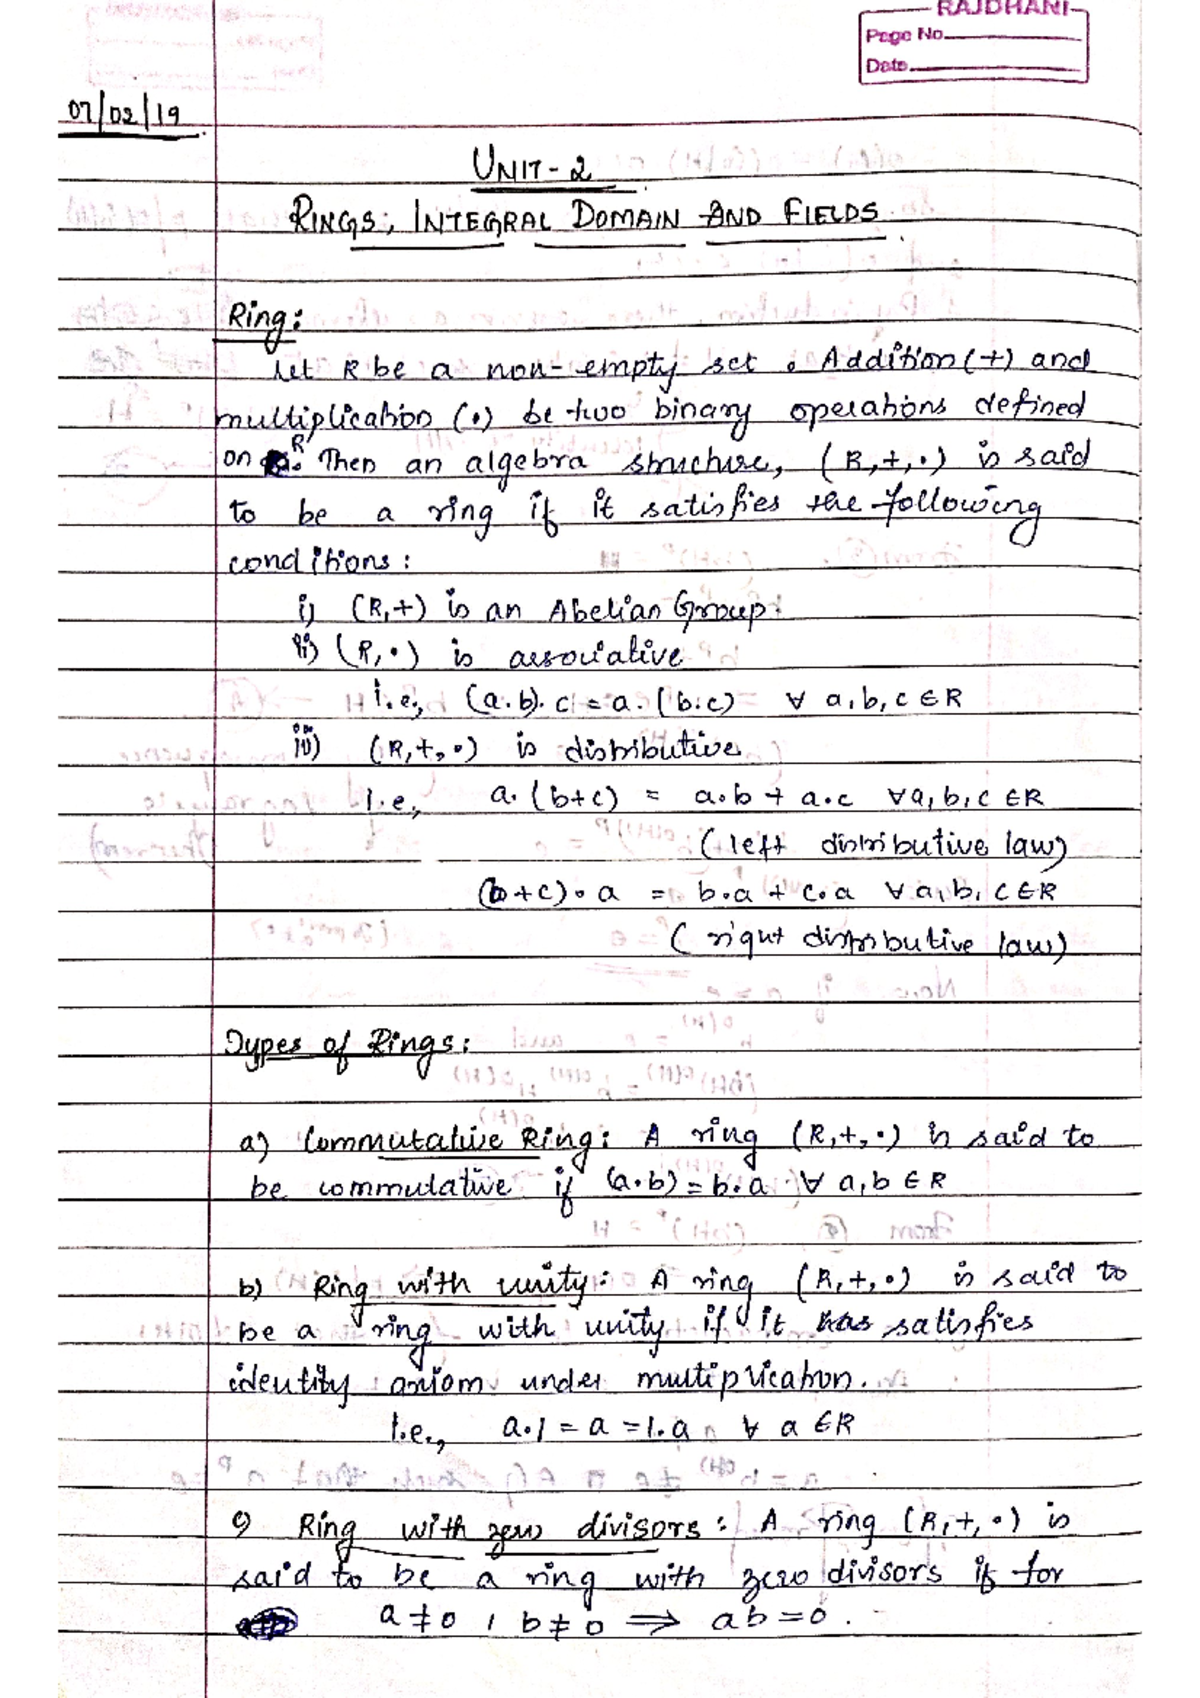 RAJDHANI
Page No.
Date
07/02/19
UNIT-2
RINGS, INTEGRAL DOMAIN AND FIELDS
Ring:
Let R be a non-empty set. Addition (+) and
multiplication (•) be two binary operations defined
on R. Then an algebra structure, (R,+,•) is said
to be a ring if it satisfies the following
conditions:
i) (R,+) is an Abelian Group.
ii) (R,•) is associative
i.e., (a.b).c = a.(b.c) ∀ a,b,c ∈ R
iii) (R,+,•) is distributive
i.e., a.(b+c) = a.b + a.c ∀ a,b,c ∈ R
(left distributive law)
(b+c).a = b.a + c.a ∀ a,b,c ∈ R
(right distributive law)
Types of Rings:
a) Commutative Ring: A ring (R,+,•) is said to
be commutative if (a.b) = b.a ∀ a,b ∈ R
b) Ring with unity: A ring (R,+,•) is said to
be a ring with unity if it has satisfies
identity axiom under multiplication.
i.e., a.1 = a = 1.a ∀ a ∈ R
c) Ring with zero divisors: A ring (R,+,•) is
said to be a ring with zero divisors if for
a ≠ 0, b ≠ 0 ⇒ ab = 0.